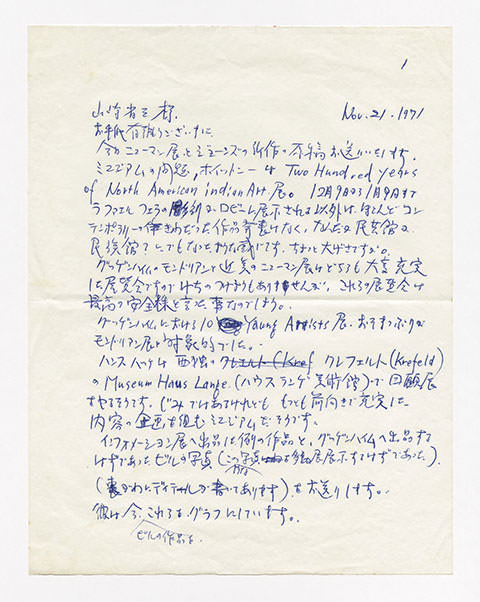 1
山崎省三様. Nov. 21. 1971
お手紙有難うございました
今日ニューマン展と の新作の原稿お送りいたします.
ミュジアムの問題, ホイットニーは Two Hundred years
of North American indian Art 展。12月9日から1月9日まで
ラファエル フェラの彫刻がロビーに展示される以外は, ほとんどコン
テンポラリーの きわだった作品 なく, なんだか民芸館か
民族館 です。ちょっと大げさですが。
グッゲンハイムのモンドリアンと近美のニューマン展はどちらも大変充実
した展覧会ですのでけちのつけようもありませんが, これらの展覧会は
最高の安全株と言った事なのでしょう.
グッゲンハイムにおける10 Young Artists 展. おそまつぶりが
モンドリアン展と対象的でした。
ハンス ハッケは西独の クレフェルト (Krefeld)
の Museum Haus Lange. (ハウス ランゲ 美術館) で回顧展
をやるそうです. じみではあるけれども もっとも前向きで充実した
内容の企画を組むミュジアムだそうです.
インフォメーション展へ出品した例の作品と, グッゲンハイムへ出品する
はずであったビルの写真 (この写真 展示するはずであった).
(裏がわにディテールが書いてあります) をお送りします。
彼は今, これらをグラフにしています。
ビルの作品を.